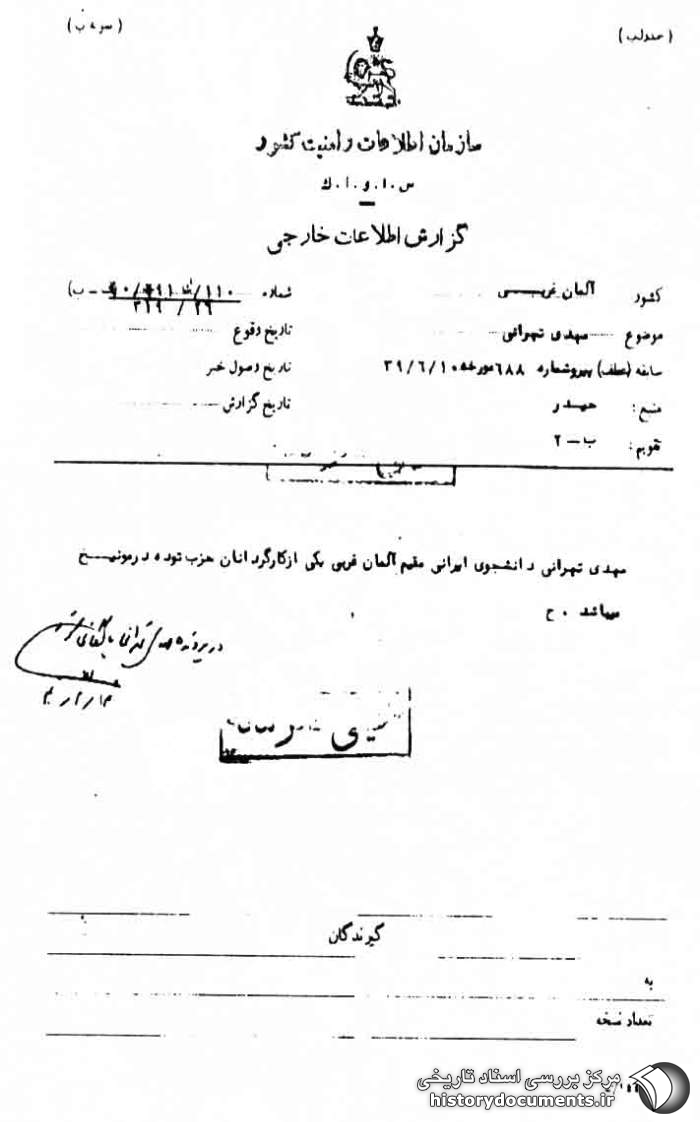 سازمان اطلاعات و امنیت کشور
س . ا . و . ا . ك
گزارش اطلاعات خارجی
کشور آلمان غربی
شماره
موضوع مهدی تهرانی
تاریخ وقوع
سابقه (عطف) پیرو شماره ۶۸۸ مورخه ۳۹/۶/۱۰
تاریخ وصول خبر
منبع : حیدر
تاریخ گزارش
تقویم : ب - ۲
مهدی تهرانی دانشجوی ایرانی مقیم آلمان غربی یکی از کارگردانان حزب توده در مونیخ
میباشد . ح
گیرندگان
به
تعداد نسخه
مرکز بررسی اسناد تاریخی
historydocuments.ir